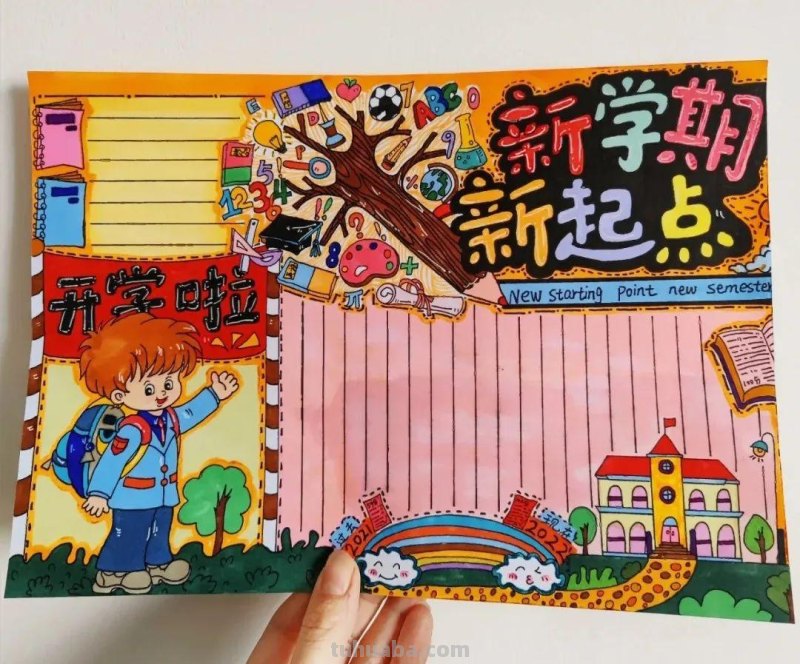 新学期
新起点
New starting Point new semester
开学啦
ABC
123
4
5
7
0
9
8
?
!!
+
÷
π
过去
2021
现在
2022
tuhuaba.com